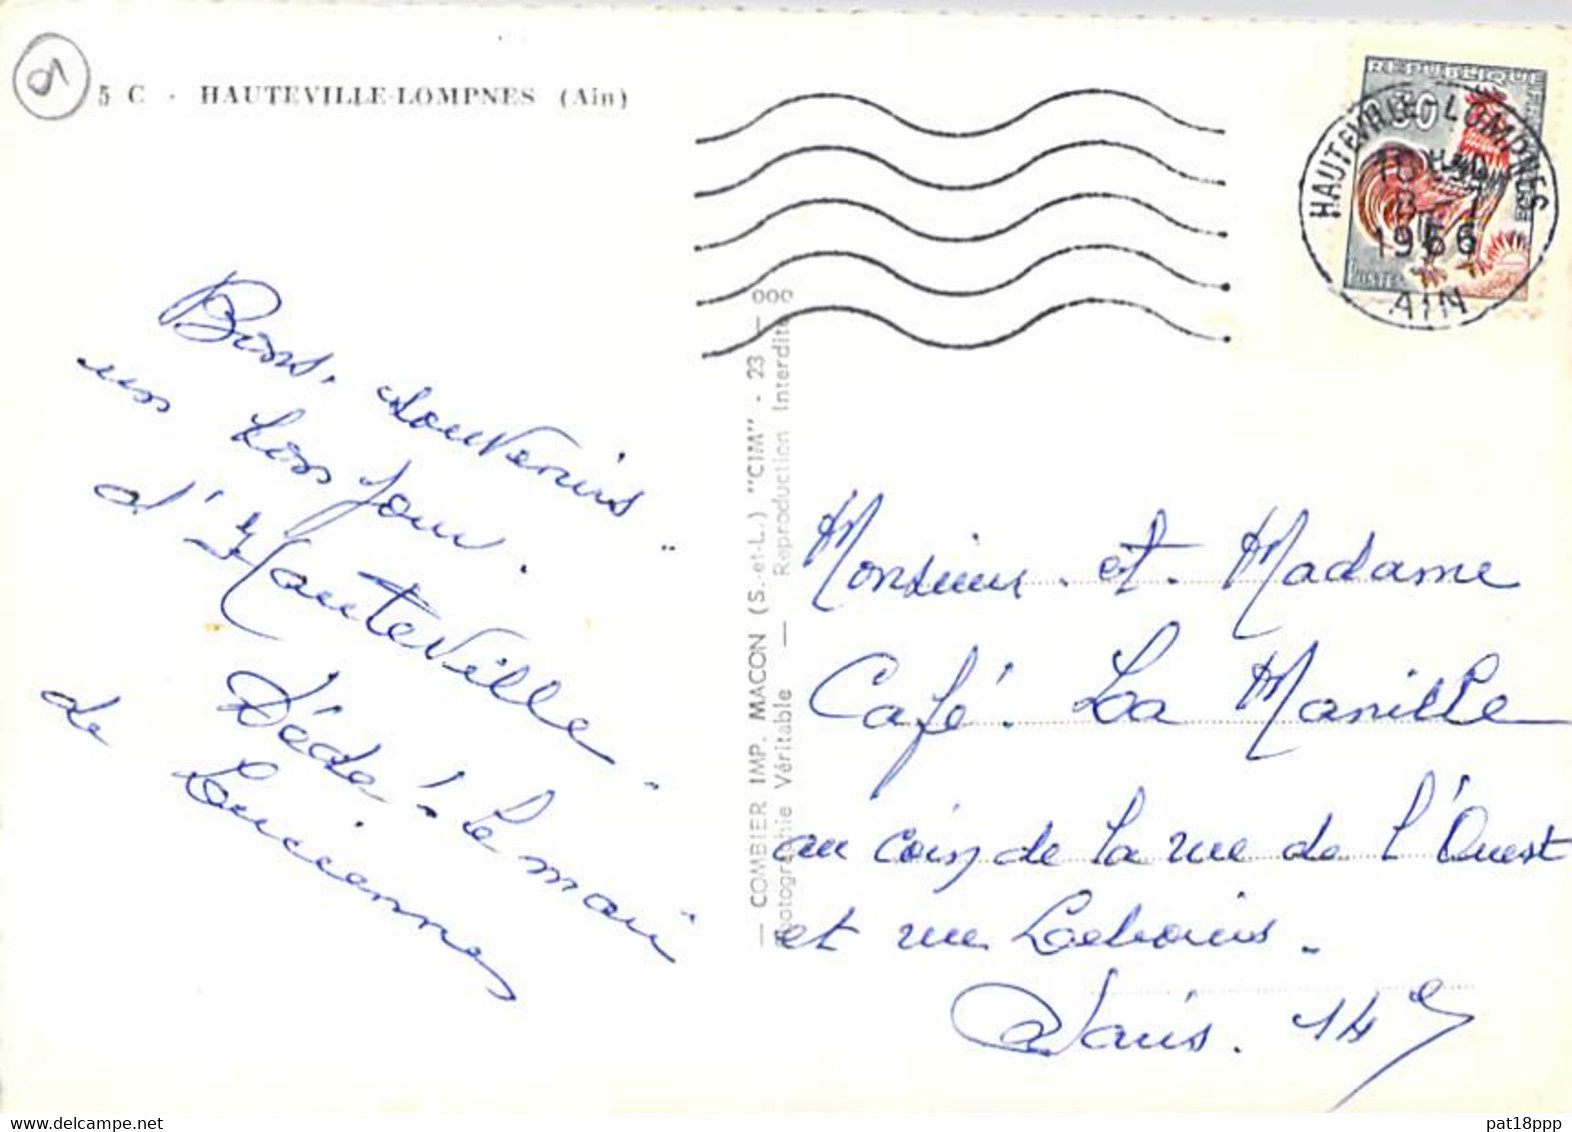 01
5 C - HAUTEVILLE-LOMPNES (Ain)
REPUBLIQUE
0,30
POSTES
HAUTEVILLE-LOMPNES
1966
AIN
Bons souvenirs
un bon jour.
d'Hauteville.
Dédé. le mari
de Lucienne
— COMBIER IMP. MACON (S.-et-L.) "CIM" - 23 — 000
Photographie Véritable — Reproduction Interdite
Monsieur et Madame
Café. La Manille
au coin de la rue de l'Ouest
et rue
Paris. 14e
pat18ppp